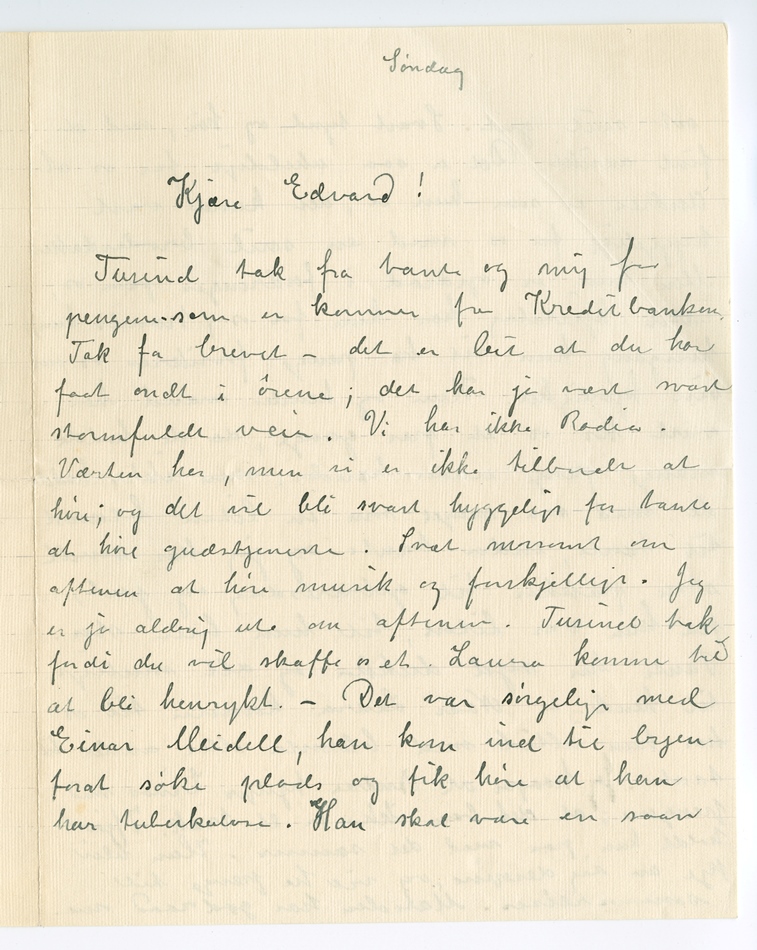 Søndag
Kjære Edvard!
Tusind tak fra tante og mig for
pengene som er kommen fra Kreditbanken.
Tak for brevet – det er leit at du har
faat ondt i ørene; det har jo vært svært
stormfuldt veir. Vi har ikke Radio.
Værten har, men vi er ikke tilbudt at
høre; og det vil bli svært hyggeligt for tante
at høre gudstjeneste. Svært morsomt om
aftenen at høre musik og forskjelligt. Jeg
er jo aldrig ute om aftenen. Tusind tak
fordi du vil skaffe os et. Laura kommer til
at bli henrykt. – Det var sørgeligt med
Einar Meidell, han kom ind til byen
forat søke plads og fik høre at han
har tuberkulose. Han skal være en saan